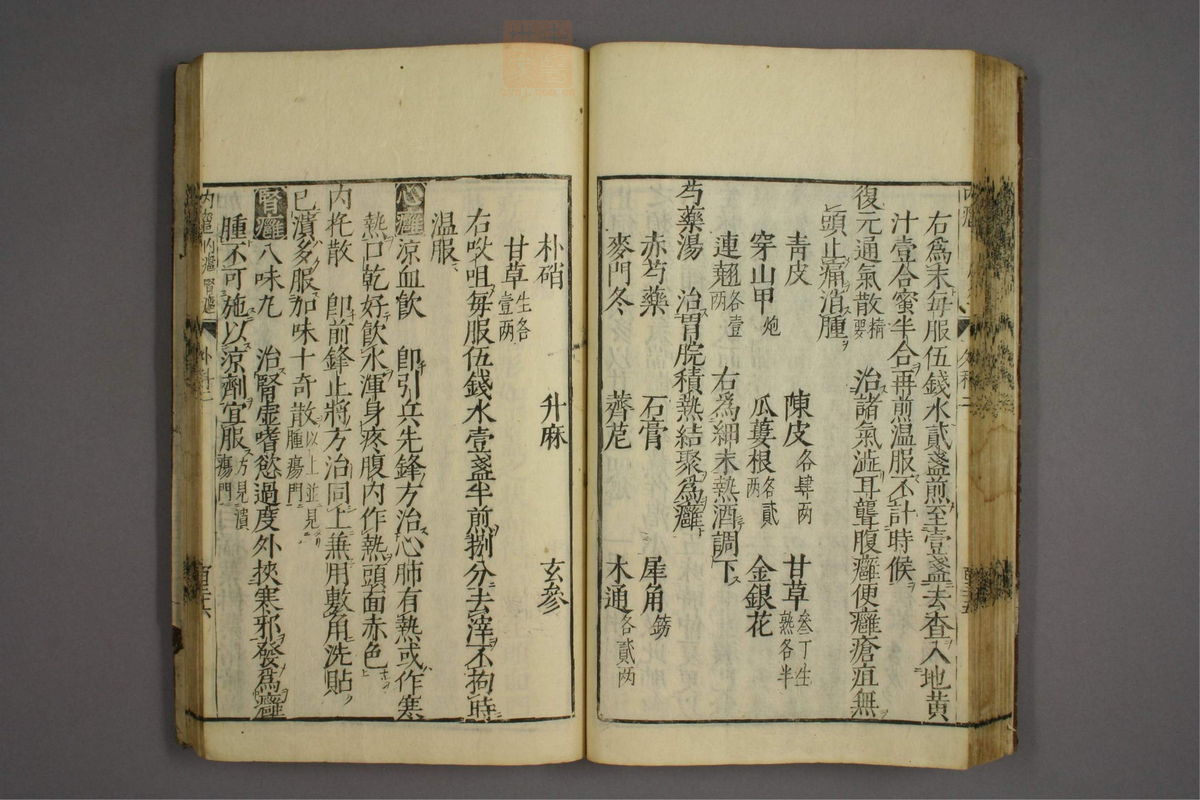 右爲末每服伍錢水貳盞煎至壹盞去查入地黃
汁壹合蜜半合再煎温服不計時候
復元通氣散精要 治諸氣澁耳聾腹癰便癰瘡疽無
頭止痛消腫
青皮 陳皮各肆两 甘草叁丁生熟各半
穿山甲炮 瓜蔞根各貳两 金銀花
連翹各壹两 右爲細末熱酒調下
芍藥湯 治胃脘積熱結聚爲癰
赤芍藥 石膏 犀角鎊
麥門冬 薺苨 木通各貳两
朴硝 升麻 玄參
甘草生各壹两
右㕮咀每服伍錢水壹盞半煎捌分去滓不拘時
温服
心癰 涼血飲 卽引兵先鋒方治心肺有熱或作寒
熱口乾好飲水渾身疼腹内作熱頭面赤色
内托散 卽前鋒止將方治同上兼用敷角洗貼
已潰多服加味十奇散以上並見腫瘍門
腎癰 八味丸 治腎虛嗜慾過度外挾寒邪發爲癰
腫不可施以涼劑宜服方見潰瘍門
内癰 腎癰
外科二